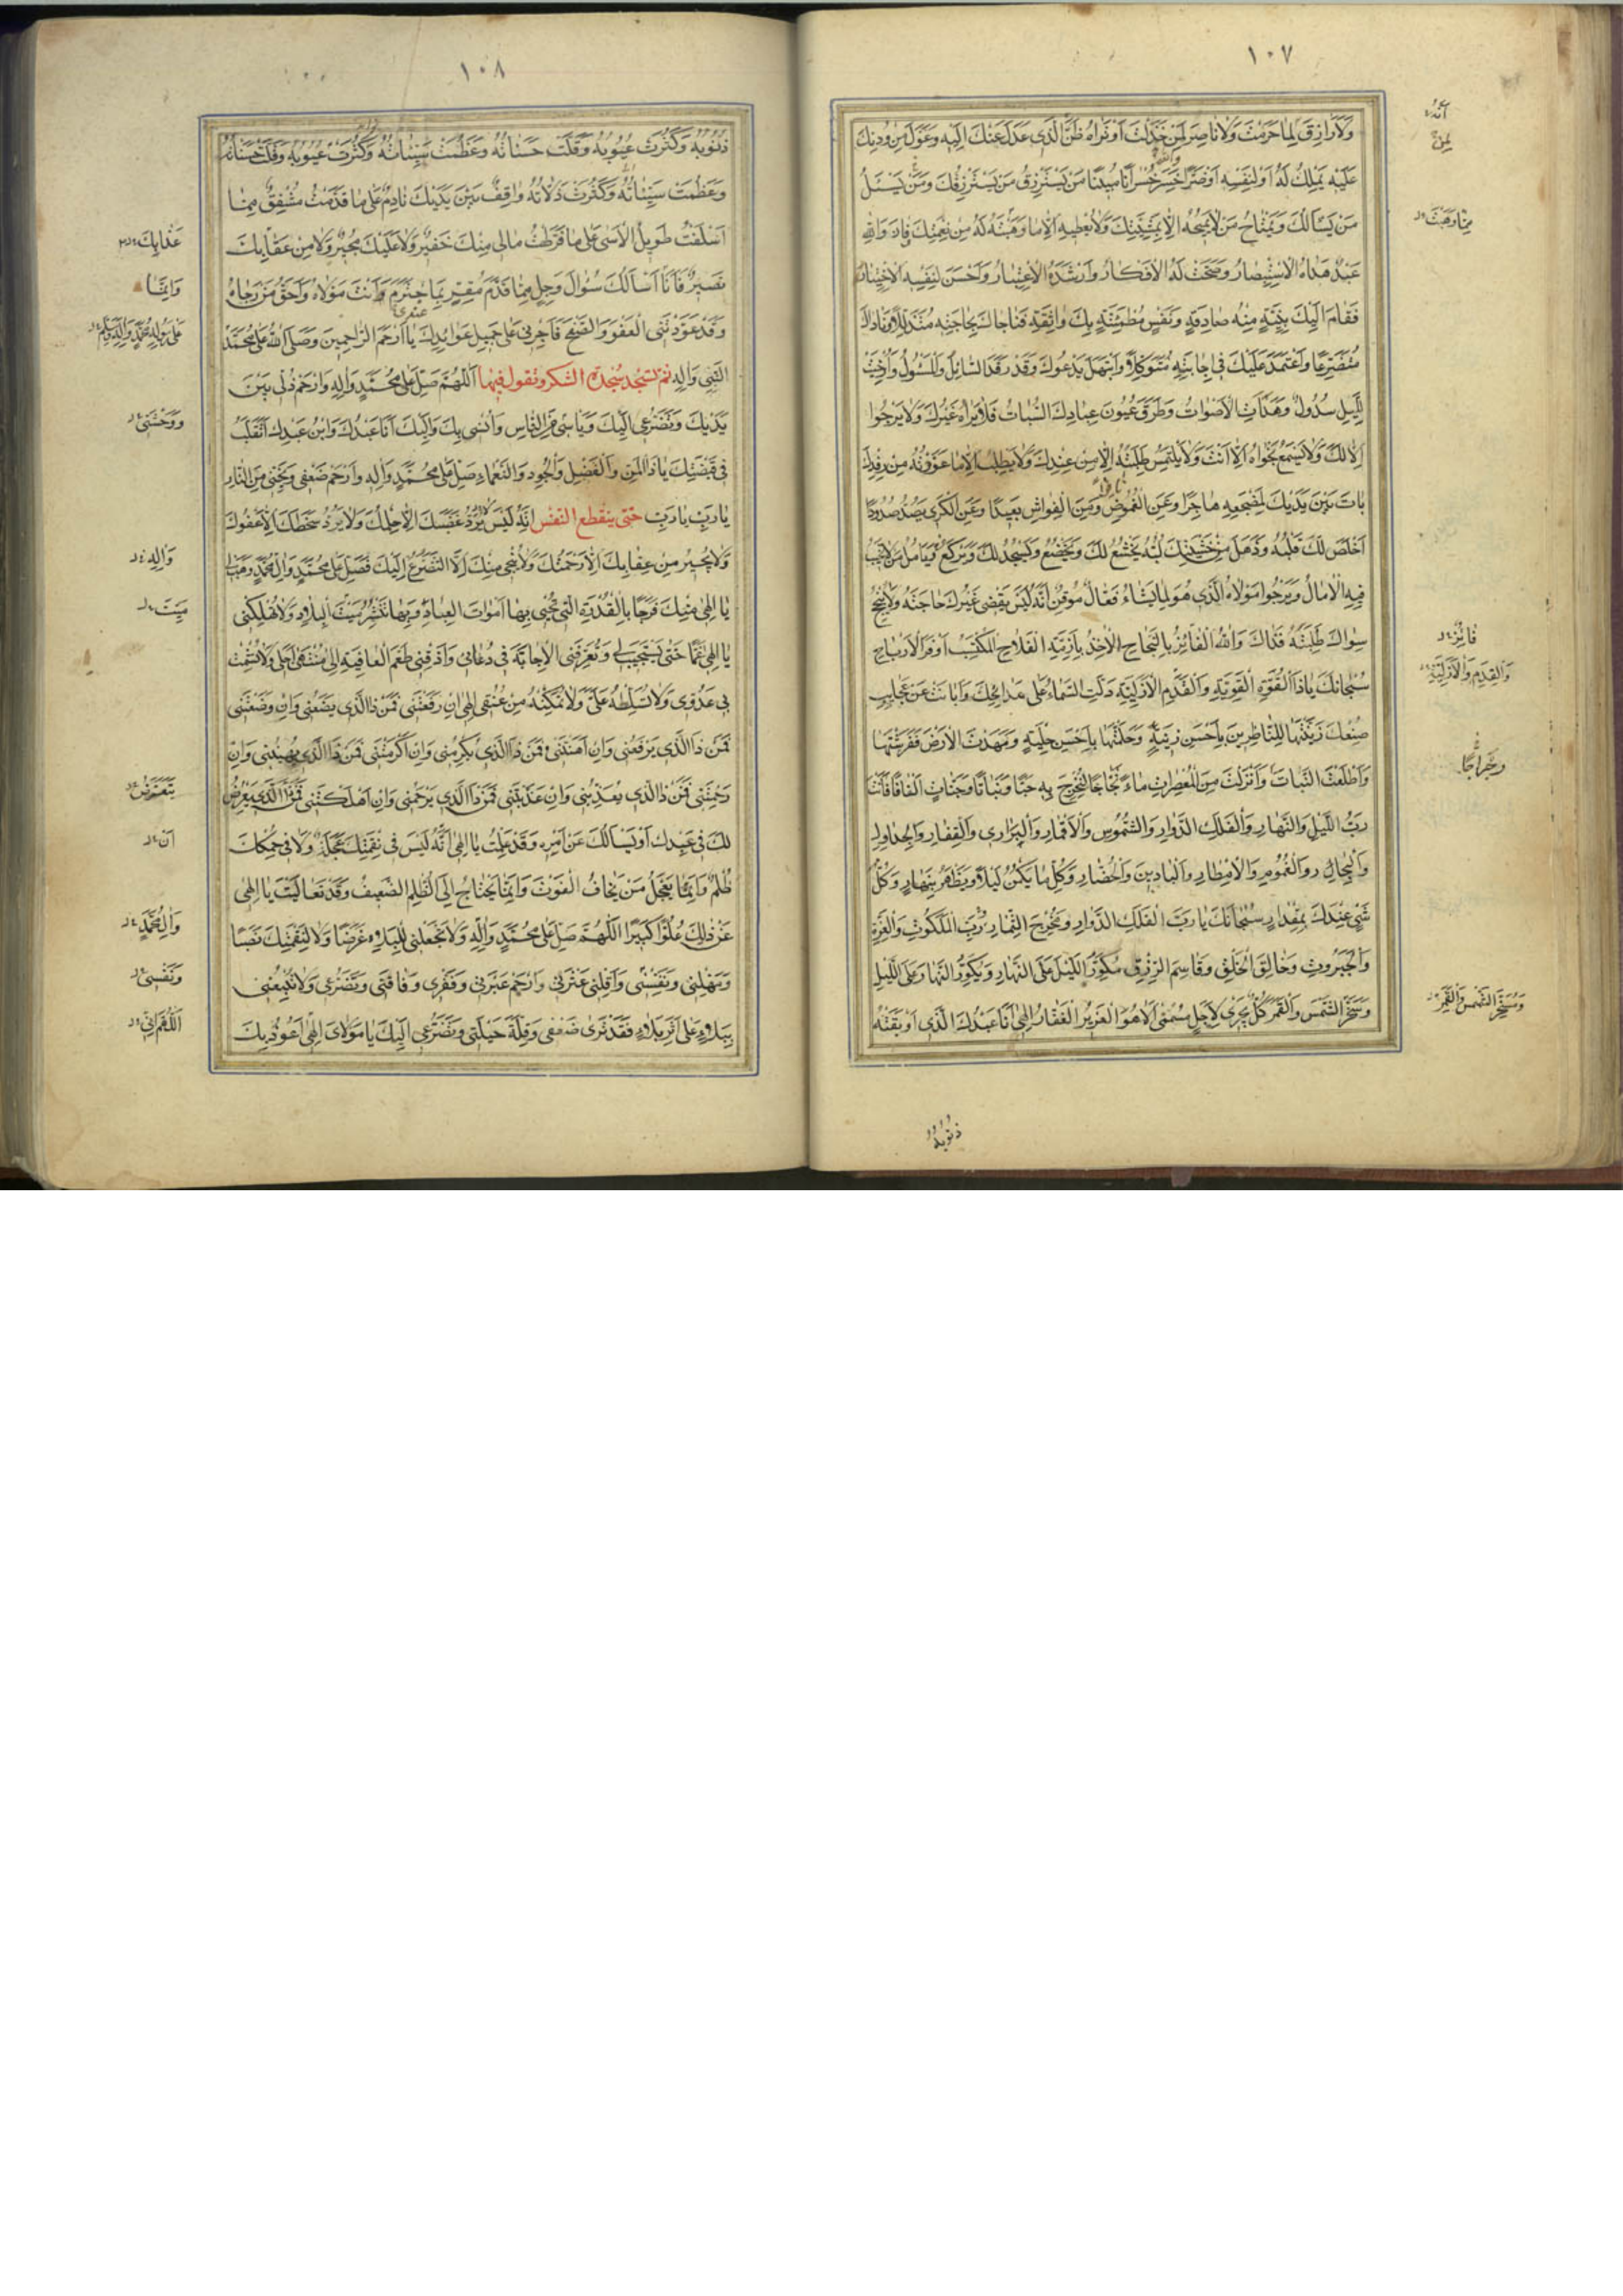 ١٠٧
وَلَا رَازِقَ لِمَا حَرَمْتَ وَلَا نَاصِرَ لِمَنْ خَذَلْتَ أَوَتَرَاهُ ظَنَّ الَّذِي عَدَلَ عَنْكَ إِلَيْهِ وَعَوَّلَ مِنْ دُونِكَ
عَلَيْهِ يَمْلِكُ لَهُ أَوْ لِنَفْسِهِ أَوْ ضَرًّا خَسِرَ خُسْرَانًا مُبِينًا مَنْ يَسْتَرْزِقُ مَنْ يَسْتَرْزِقُكَ وَمَنْ يَسْئَلُ
مَنْ يَسْأَلُكَ وَيَمْتَاحُ مَنْ لَا يَمِيحُهُ إِلَّا بِمَشِيَّتِكَ وَلَا يُعْطِيهِ إِلَّا مَا وَهَبْتَهُ لَهُ مِنْ نِعْمَتِكَ فَازَ وَاللهِ
عَبْدٌ هَدَاهُ الْاِسْتِبْصَارُ وَصَحَّتْ لَهُ الْأَفْكَارُ وَأَرْشَدَهُ الْاِعْتِبَارُ وَأَحْسَنَ لِنَفْسِهِ الْاِخْتِيَارَ
فَقَامَ إِلَيْكَ بِنِيَّةٍ مِنْهُ صَادِقَةٍ وَنَفْسٍ مُطْمَئِنَّةٍ بِكَ وَاثِقَةٍ فَنَاجَاكَ بِحَاجَتِهِ مُتَذَلِّلًا وَنَادَاكَ
مُتَضَرِّعًا وَاعْتَمَدَ عَلَيْكَ فِي إِجَابَتِهِ مُتَوَكِّلًا وَابْتَهَلَ يَدْعُوكَ وَقَدْ رَقَدَ السَّائِلُ وَالْمَسْئُولُ وَأُرْخِيَتْ
لِلَّيْلِ سُدُولٌ وَهَدَأَتِ الْأَصْوَاتُ وَطَرَقَ عُيُونَ عِبَادِكَ السُّبَاتُ فَلَا يَرَاهُ غَيْرُكَ وَلَا يَرْجُوا
إِلَّا لَكَ وَلَا يَسْمَعُ نَجْوَاهُ إِلَّا أَنْتَ وَلَا يَلْتَمِسُ طَلِبَتَهُ إِلَّا مِنْ عِنْدِكَ وَلَا يَطْلُبُ إِلَّا مَا عَوَّدْتَهُ مِنْ رِفْدِكَ
بَاتَ بَيْنَ يَدَيْكَ لِمَضْجَعِهِ هَاجِرًا وَعَنِ الْغُمُوضِ وَمِنَ الْفِرَاشِ بَعِيدًا وَعَنِ الْكَرَى يَصُدُّ صُدُودًا
أَخْلَصَ لَكَ قَلْبَهُ وَذَهَلَ مِنْ خَشْيَتِكَ لُبُّهُ يَخْشَعُ لَكَ وَيَخْضَعُ وَيَسْجُدُ لَكَ وَيَرْكَعُ يَأْمُلُ مَنْ لَا تَخِيبُ
فِيهِ الْآمَالُ وَيَرْجُوا مَوْلَاهُ الَّذِي هُوَ لِمَا يَشَاءُ فَعَّالٌ مُوقِنٌ أَنَّهُ لَيْسَ يَقْضِي غَيْرُكَ حَاجَتَهُ وَلَا يُنْجِحُ
سِوَاكَ طَلِبَتَهُ فَذَاكَ وَاللهُ الْفَائِزُ بِالنَّجَاحِ الْآخِذُ بِأَزِمَّةِ الْفَلَاحِ الْمُكْتَسِبُ أَوْفَرَ الْأَرْبَاحِ
سُبْحَانَكَ يَا ذَا الْقُوَّةِ الْقَوِيَّةِ وَالْقِدَمِ الْأَزَلِيَّةِ دَلَّتِ السَّمَاءُ عَلَى مَدَائِحِكَ وَأَبَانَتْ عَنْ عَجَايِبِ
صُنْعِكَ زَيَّنْتَهَا لِلنَّاظِرِينَ بِأَحْسَنِ زِينَةٍ وَحَلَّيْتَهَا بِأَحْسَنِ حِلْيَةٍ وَمَهَّدْتَ الْأَرْضَ فَفَرَشْتَهَا
وَأَطْلَعْتَ النَّبَاتَ وَأَنْزَلْتَ مِنَ الْمُعْصِرَاتِ مَاءً ثَجَّاجًا لِتُخْرِجَ بِهِ حَبًّا وَنَبَاتًا وَجَنَّاتٍ أَلْفَافًا فَأَنْتَ
رَبُّ اللَّيْلِ وَالنَّهَارِ وَالْفَلَكِ الدَّوَّارِ وَالشُّمُوسِ وَالْأَقْمَارِ وَالْبَرَارِي وَالْقِفَارِ وَالْجَدَاوِلِ
وَالْبِحَارِ وَالْغُيُومِ وَالْأَمْطَارِ وَالْبَادِينَ وَالْحُضَّارِ وَكُلِّ مَا يَكْمُنُ لَيْلًا وَيَظْهَرُ بِنَهَارٍ وَكُلُّ
شَيْءٍ عِنْدَكَ بِمِقْدَارٍ سُبْحَانَكَ يَا رَبَّ الْفَلَكِ الدَّوَّارِ وَمُخْرِجَ الثِّمَارِ رَبَّ الْمَلَكُوتِ وَالْعِزَّةِ
وَالْجَبَرُوتِ وَخَالِقَ الْخَلْقِ وَقَاسِمَ الرِّزْقِ مُكَوِّرَ اللَّيْلِ عَلَى النَّهَارِ وَيُكَوِّرُ النَّهَارَ عَلَى اللَّيْلِ
وَسَخَّرَ الشَّمْسَ وَالْقَمَرَ كُلٌّ يَجْرِي لِأَجَلٍ مُسَمًّى أَلَا هُوَ الْعَزِيزُ الْغَفَّارُ إِلَهِي أَنَا عَبْدُكَ الَّذِي أَوْبَقَتْهُ
ذُنُوبُهُ
أَنَّهُ
لِمَنْ
مِمَّا وَهَبْتَ
فَايِزٌ
وَالْقِدَمِ وَالْأَزَلِيَّةِ
وَمُسَخِّرَ الشَّمْسِ وَالْقَمَرِ
١٠٨
ذُنُوبُهُ وَكَثُرَتْ عُيُوبُهُ وَقَلَّتْ حَسَنَاتُهُ وَعَظُمَتْ سَيِّئَاتُهُ وَكَثُرَتْ عُيُوبُهُ وَقَلَّتْ حَسَنَاتُهُ
وَعَظُمَتْ سَيِّئَاتُهُ وَكَثُرَتْ زَلَّاتُهُ وَاقِفٌ بَيْنَ يَدَيْكَ نَادِمٌ عَلَى مَا قَدَّمْتُ مُشْفِقٌ مِمَّا
أَسْلَفْتُ طَوِيلُ الْأَسَى عَلَى مَا فَرَّطْتُ مَالِي مِنْكَ خَفِيرٌ وَلَا عَلَيْكَ مُجِيرٌ وَلَا مِنْ عِقَابِكَ
نَصِيرٌ فَأَنَا أَسْأَلُكَ سُؤَالَ وَجِلٍ مِمَّا قَدَّمَ مُقِرٍّ بِمَا اجْتَرَمَ وَأَنْتَ مَوْلَاهُ وَأَحَقُّ مَنْ رَجَاهُ
وَقَدْ عَوَّدْتَنِي الْعَفْوَ وَالصَّفْحَ فَأَجْرِنِي عَلَى جَمِيلِ عَوَائِدِكَ يَا أَرْحَمَ الرَّاحِمِينَ وَصَلَّى اللهُ عَلَى مُحَمَّدٍ
النَّبِيِّ وَآلِهِ ثُمَّ تَسْجُدُ سَجْدَةَ الشُّكْرِ وَتَقُولُ فِيهَا اللَّهُمَّ صَلِّ عَلَى مُحَمَّدٍ وَآلِهِ وَارْحَمْ ذُلِّي بَيْنَ
يَدَيْكَ وَتَضَرُّعِي إِلَيْكَ وَيَأْسِي مِنَ النَّاسِ وَأُنْسِي بِكَ وَإِلَيْكَ أَنَا عَبْدُكَ وَابْنُ عَبْدِكَ أَتَقَلَّبُ
فِي قَبْضَتِكَ يَا ذَا الْمَنِّ وَالْفَضْلِ وَالْجُودِ وَالنَّعْمَاءِ صَلِّ عَلَى مُحَمَّدٍ وَآلِهِ وَارْحَمْ ضَعْفِي وَنَجِّنِي مِنَ النَّارِ
يَا رَبِّ يَا رَبِّ حَتَّى يَنْقَطِعَ النَّفَسُ إِنَّهُ لَيْسَ يَرُدُّ غَضَبَكَ إِلَّا حِلْمُكَ وَلَا يَرُدُّ سَخَطَكَ إِلَّا عَفْوُكَ
وَلَا يُجِيرُ مِنْ عِقَابِكَ إِلَّا رَحْمَتُكَ وَلَا يُنْجِي مِنْكَ إِلَّا التَّضَرُّعُ إِلَيْكَ فَصَلِّ عَلَى مُحَمَّدٍ وَآلِ مُحَمَّدٍ وَهَبْ لِي
يَا إِلَهِي مِنْكَ فَرَجًا بِالْقُدْرَةِ الَّتِي تُحْيِي بِهَا أَمْوَاتَ الْعِبَادِ وَبِهَا تَنْشُرُ مَيْتَ الْبِلَادِ وَلَا تُهْلِكْنِي
يَا إِلَهِي غَمًّا حَتَّى تَسْتَجِيبَ لِي وَتُعَرِّفَنِي الْإِجَابَةَ فِي دُعَائِي وَأَذِقْنِي طَعْمَ الْعَافِيَةِ إِلَى مُنْتَهَى أَجَلِي وَلَا تُشْمِتْ
بِي عَدُوِّي وَلَا تُسَلِّطْهُ عَلَيَّ وَلَا تُمَكِّنْهُ مِنْ عُنُقِي إِلَهِي إِنْ رَفَعْتَنِي فَمَنْ ذَا الَّذِي يَضَعُنِي وَإِنْ وَضَعْتَنِي
فَمَنْ ذَا الَّذِي يَرْفَعُنِي وَإِنْ أَهَنْتَنِي فَمَنْ ذَا الَّذِي يُكْرِمُنِي وَإِنْ أَكْرَمْتَنِي فَمَنْ ذَا الَّذِي يُهِينُنِي وَإِنْ
رَحِمْتَنِي فَمَنْ ذَا الَّذِي يُعَذِّبُنِي وَإِنْ عَذَّبْتَنِي فَمَنْ ذَا الَّذِي يَرْحَمُنِي وَإِنْ أَهْلَكْتَنِي فَمَنْ ذَا الَّذِي يَعْرِضُ
لَكَ فِي عَبْدِكَ أَوْ يَسْأَلُكَ عَنْ أَمْرِهِ وَقَدْ عَلِمْتُ يَا إِلَهِي أَنَّهُ لَيْسَ فِي نَقِمَتِكَ عَجَلَةٌ وَلَا فِي حُكْمِكَ
ظُلْمٌ وَإِنَّمَا يَعْجَلُ مَنْ يَخَافُ الْفَوْتَ وَإِنَّمَا يَحْتَاجُ إِلَى الظُّلْمِ الضَّعِيفُ وَقَدْ تَعَالَيْتَ يَا إِلَهِي
عَنْ ذَلِكَ عُلُوًّا كَبِيرًا اللَّهُمَّ صَلِّ عَلَى مُحَمَّدٍ وَآلِهِ وَلَا تَجْعَلْنِي لِلْبَلَاءِ غَرَضًا وَلَا لِنَقِمَتِكَ نَصَبًا
وَمَهِّلْنِي وَنَفِّسْنِي وَأَقِلْنِي عَثْرَتِي وَارْحَمْ عَبْرَتِي وَفَقْرِي وَفَاقَتِي وَتَضَرُّعِي وَلَا تُتْبِعْنِي
بِبَلَاءٍ عَلَى أَثَرِ بَلَاءٍ فَقَدْ تَرَى ضَعْفِي وَقِلَّةَ حِيلَتِي وَتَضَرُّعِي إِلَيْكَ يَا مَوْلَايَ إِلَهِي أَعُوذُ بِكَ
عَذَابِكَ
وَإِنَّمَا
وَوَحْشَتِي
وَآلِهِ
مَيِّتَ
يَتَعَرَّضُ
أَنْ
وَآلِ مُحَمَّدٍ
وَنَفْسِي
اللَّهُمَّ إِنِّي